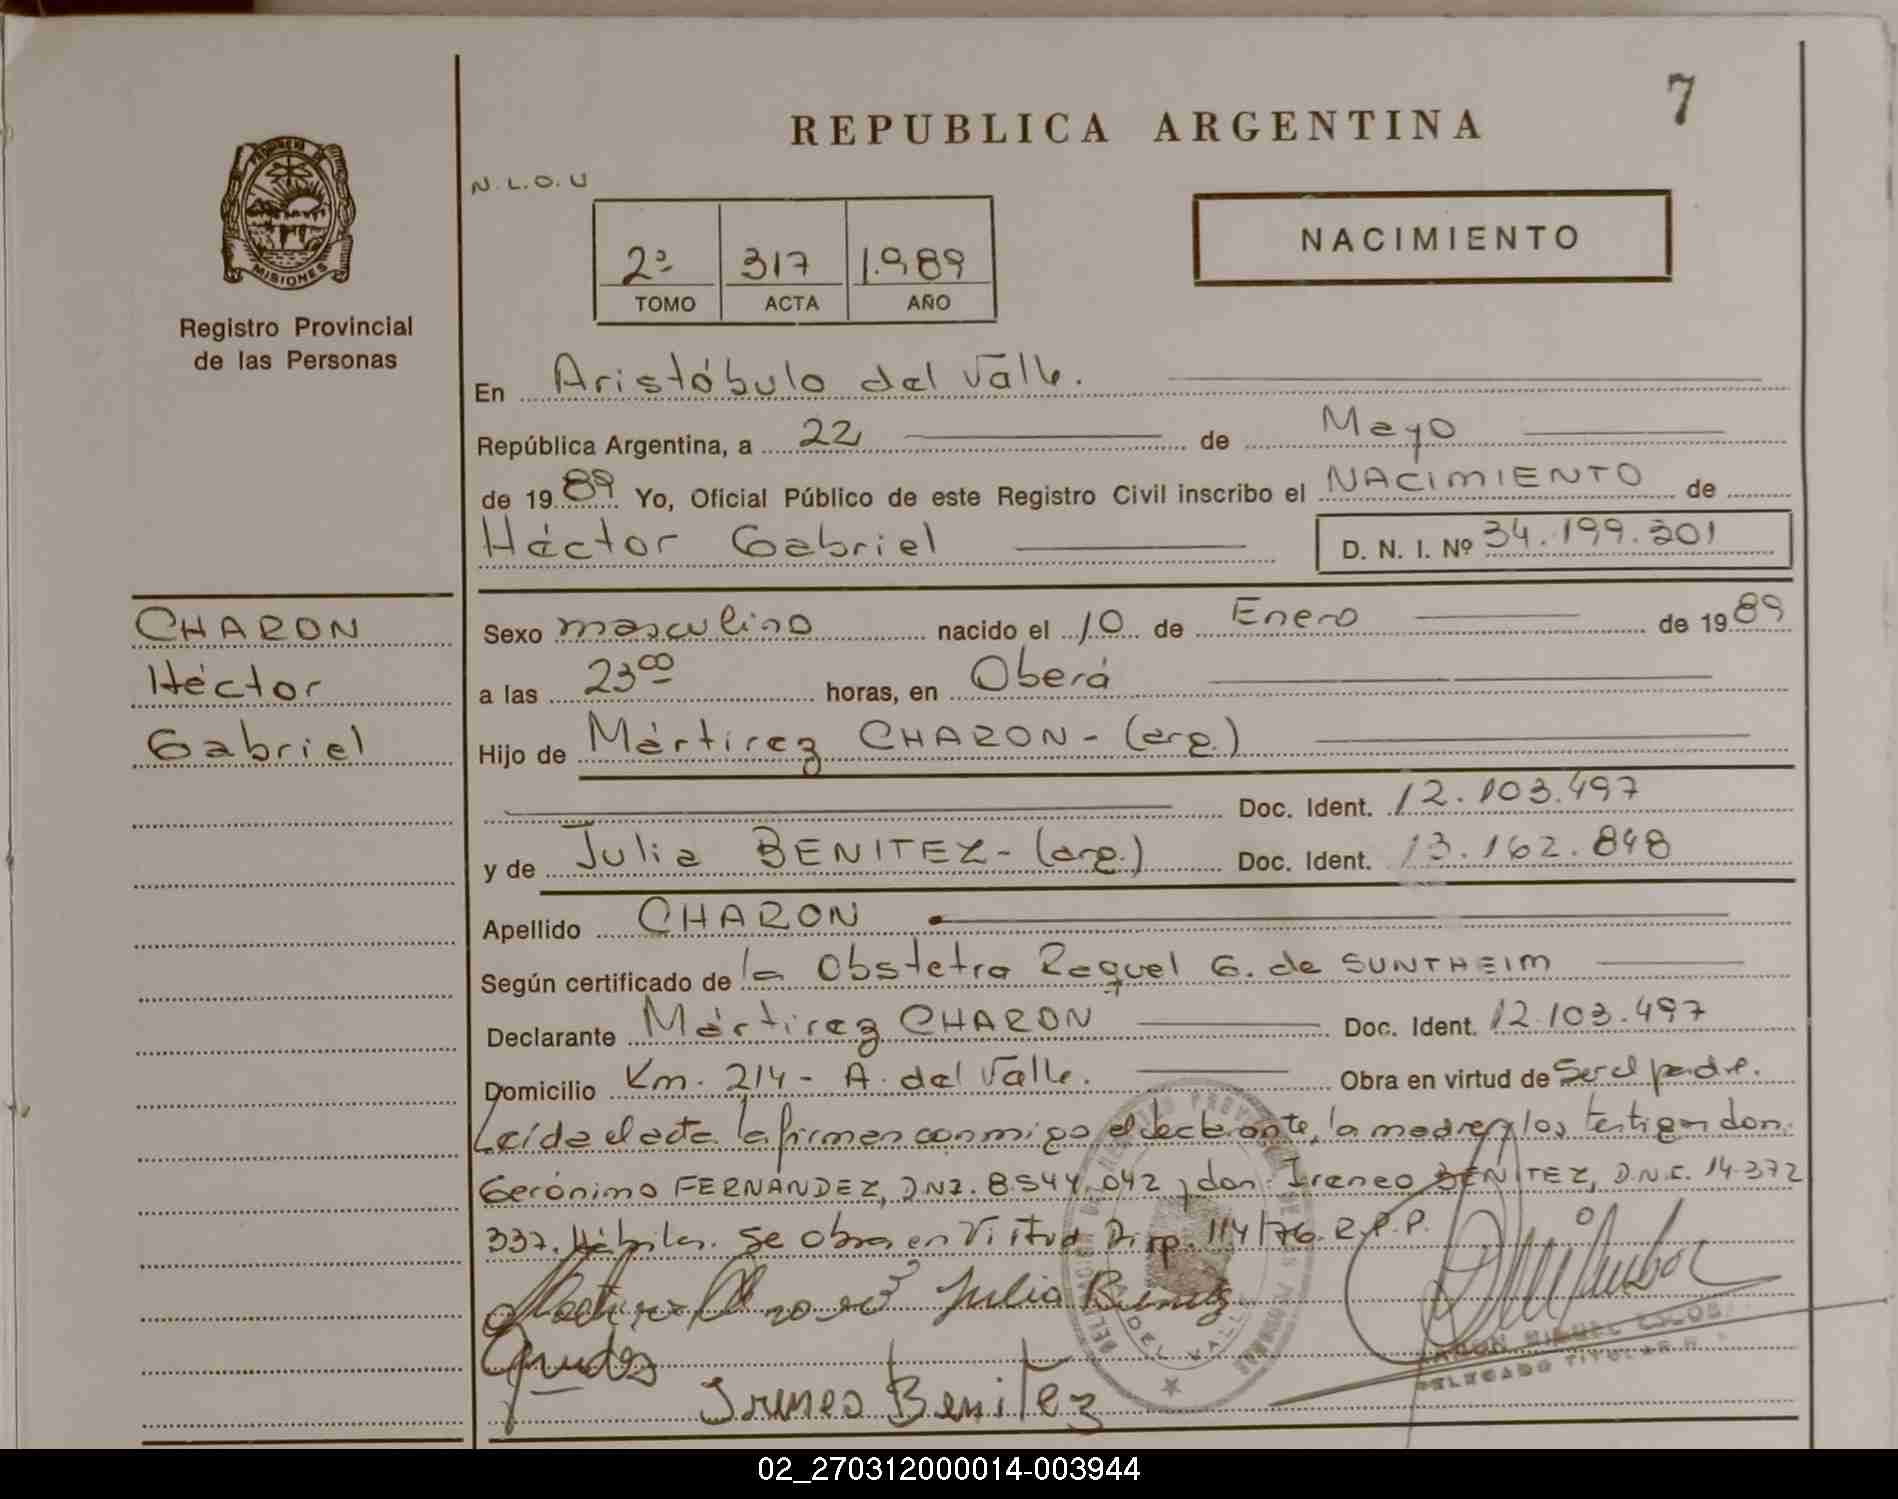 7
REPUBLICA ARGENTINA
N.L.O.U
NACIMIENTO
2º 317 1.989
TOMO ACTA AÑO
PROVINCIA DE
MISIONES
Registro Provincial
de las Personas
En Aristóbulo del Valle.
República Argentina, a 22 de Mayo
de 1989 Yo, Oficial Público de este Registro Civil inscribo el NACIMIENTO de
Héctor Gabriel D. N. I. Nº 34.199.301
CHARON
Héctor
Gabriel
Sexo masculino nacido el 10 de Enero de 1989
a las 23⁰⁰ horas, en Oberá
Hijo de Mártirez CHARON - (arg.)
Doc. Ident. 12.103.497
y de Julia BENITEZ - (arg.) Doc. Ident. 13.162.848
Apellido CHARON
Según certificado de la Obstetra Raquel G. de SUNTHEIM
Declarante Mártirez CHARON Doc. Ident. 12.103.497
Domicilio Km. 214 - A. del Valle. Obra en virtud de Ser el padre.
Leída el acta la firman conmigo el declarante, la madre y los testigos don
Gerónimo FERNANDEZ, D.N.I. 8.544.042 y don Ireneo BENITEZ, D.N.I. 14.372
337. Hábiles. Se obra en Virtud Disp. 114/76. R.P.P.
Julia Benitez
Ireneo Benitez
DEL VALLE
MIGUEL
DELEGADO TITULAR
02_270312000014-003944